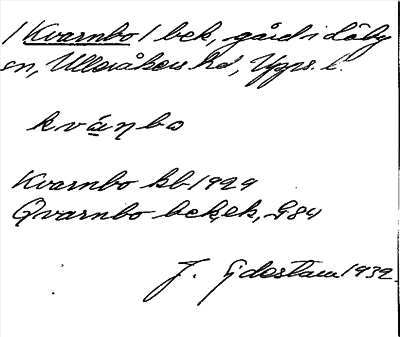 / Kvarnbo / bek, gård i Läby
sn, Ulleråkers hd, Upps. l.
kváṇbo
Kvarnbo kb 1929
Qvarnbo bek, ek, G84
J. Gjdestam 1932